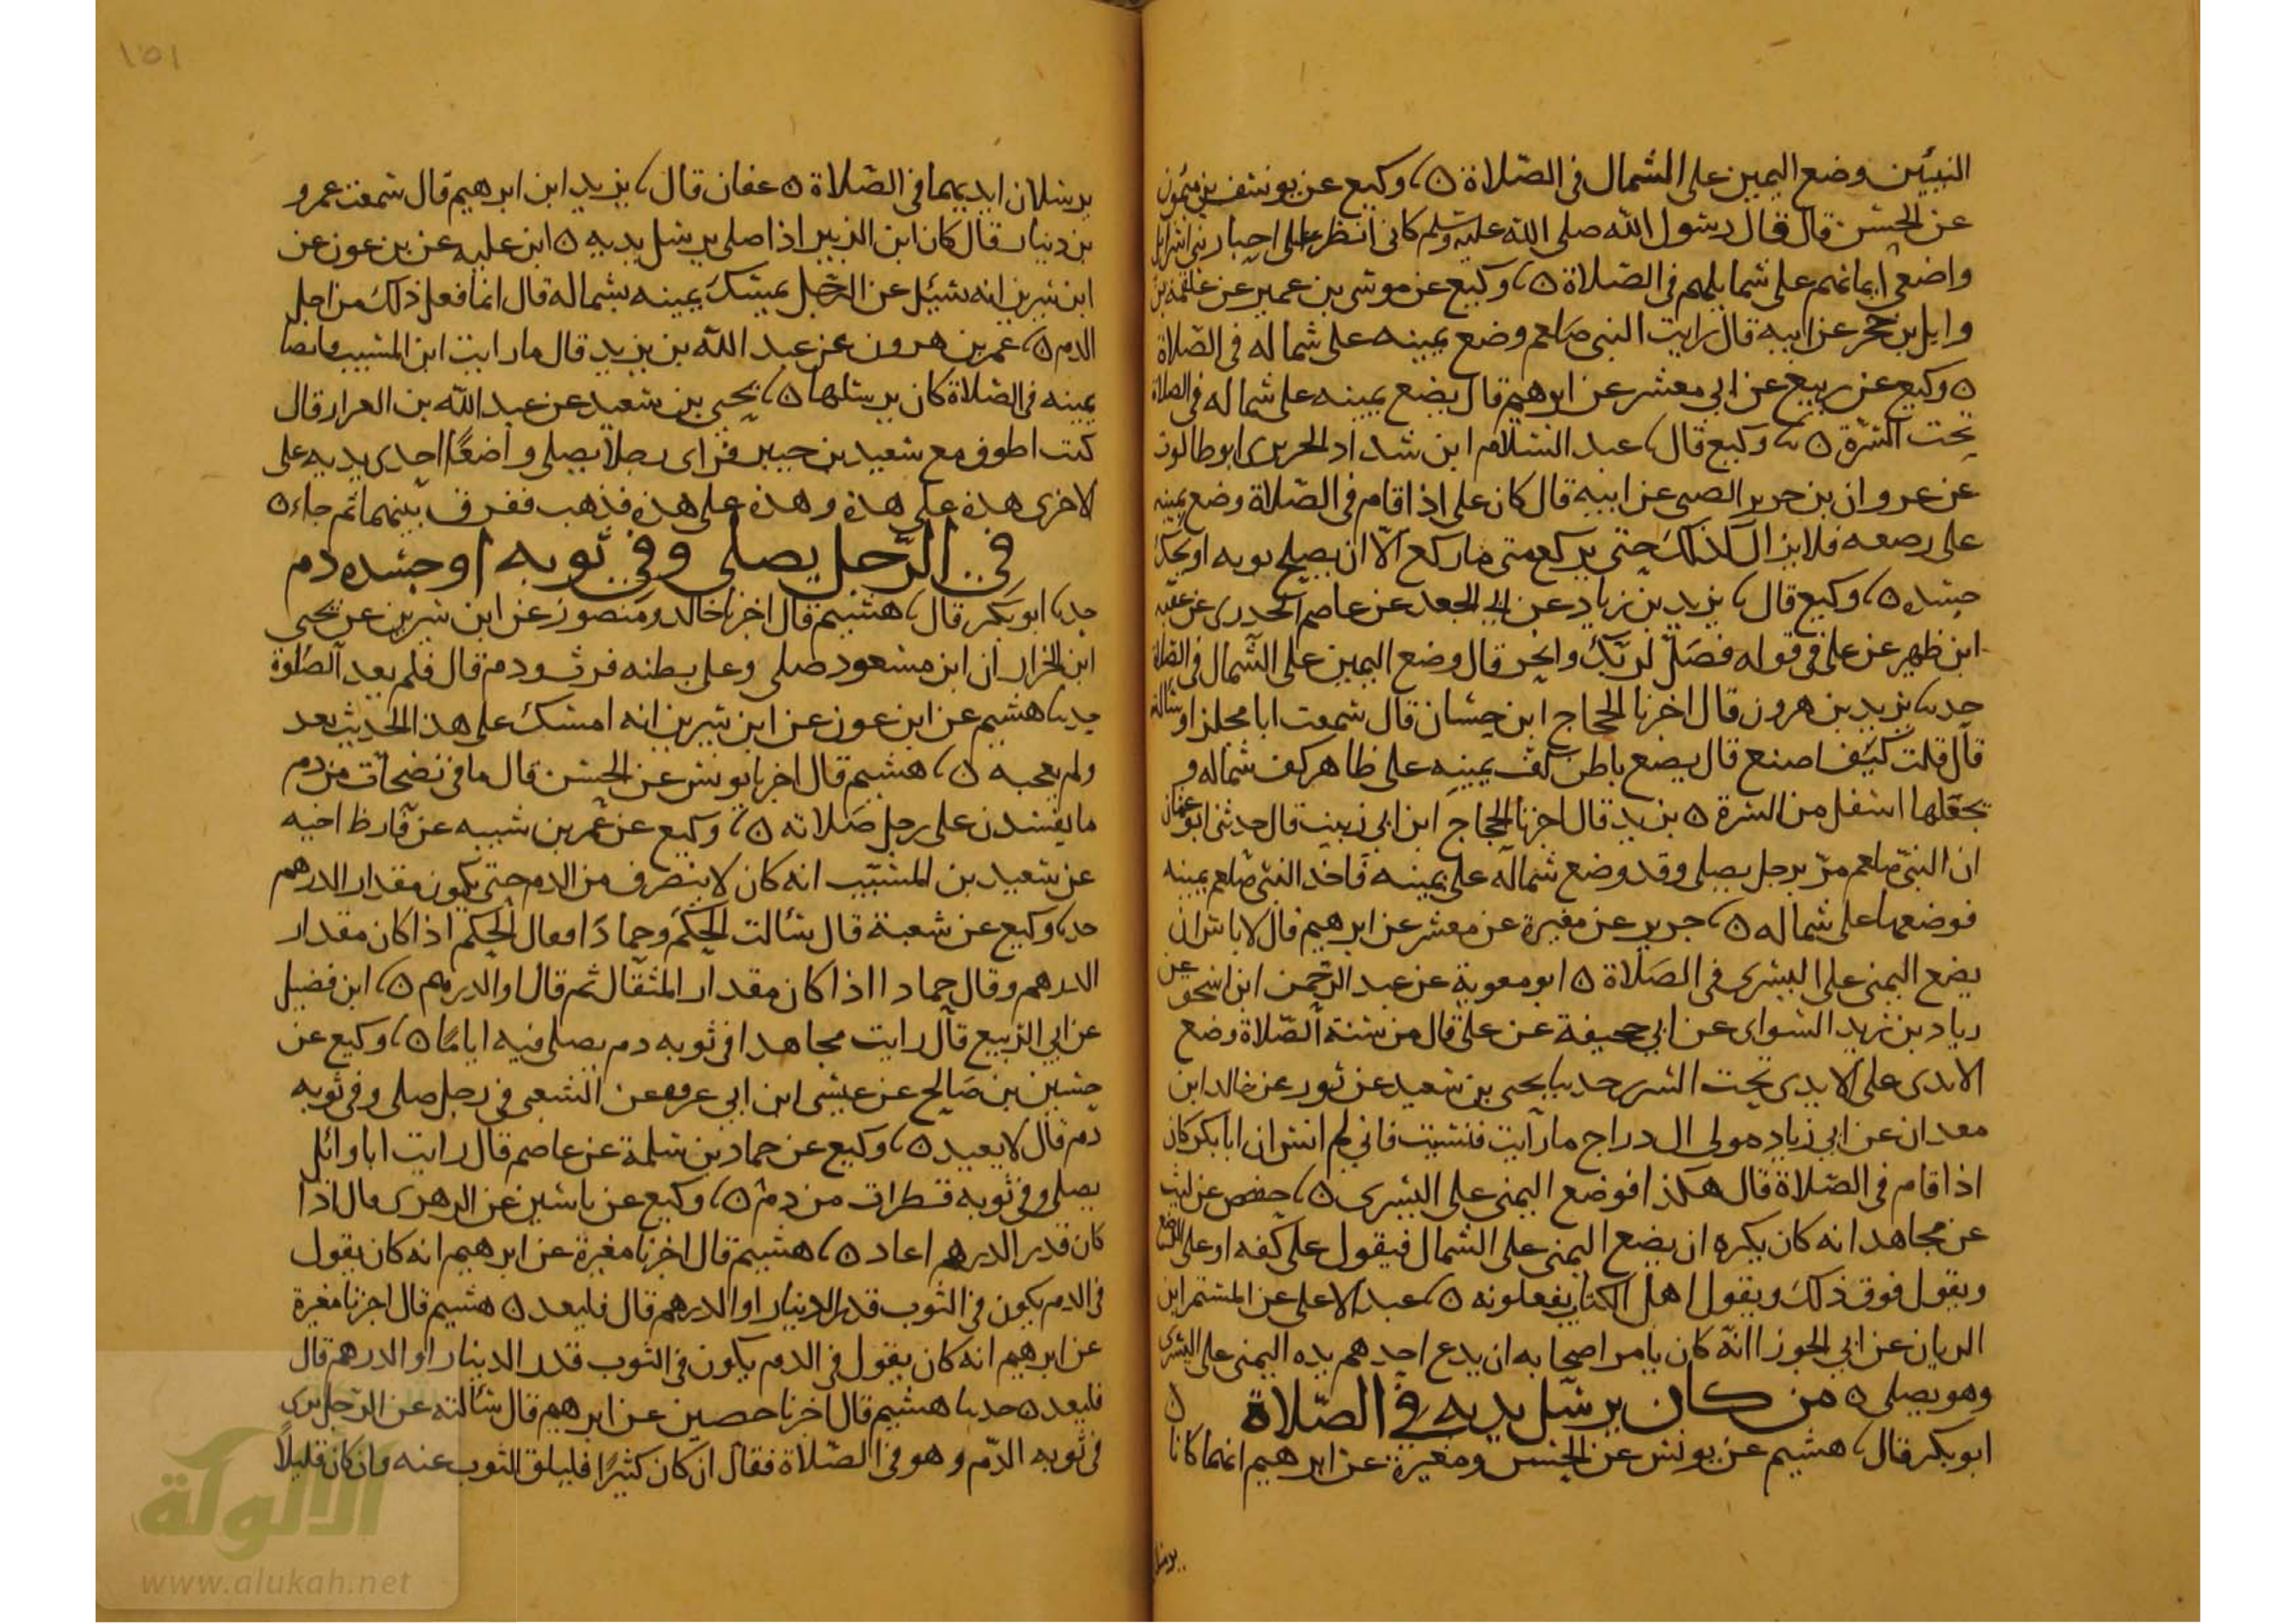 النبيين وضع اليمين على الشمال في الصلاة ۵ وكيع عن يوسف بن ميمون
عن الحسن قال قال رسول الله صلى الله عليه وسلم كاني انظر الى احبار بني اسرايل
واضعي ايمانهم على شمايلهم في الصلاة ۵ وكيع عن موسى بن عمير عن علقمة بن
وايل بن حجر عن ابيه قال رايت النبي صلعم وضع يمينه على شماله في الصلاة
۵ وكيع عن ربيع عن ابي معشر عن ابرهيم قال يضع يمينه على شماله في الصلاة
تحت السرة ۵ وكيع قال عبد السلام ابن شداد الحريري ابو طالوت
عن غزوان بن جرير الضبي عن ابيه قال كان علي اذا قام في الصلاة وضع يمينه
على رصغه فلا يزال كذلك حتى يركع متى ما ركع الا ان يصلح ثوبه او يحك
جسده ۵ وكيع قال يزيد بن زياد عن ابي الجعد عن عاصم الجحدري عن عقبه
ابن ظهير عن علي في قوله فصل لربك وانحر قال وضع اليمين على الشمال في الصلاة
حدثنا يزيد بن هرون قال اخبرنا الحجاج ابن حسان قال سمعت ابا مجلز او سالته
قال قلت كيف اصنع قال يضع باطن كف يمينه على ظاهر كف شماله و
يجعلها اسفل من السرة ۵ يزيد قال اخبرنا الحجاج ابن ابي زينب قال حدثني ابو عثمان
ان النبي صلعم مر برجل يصلي وقد وضع شماله على يمينه فاخذ النبي صلعم يمينه
فوضعها على شماله ۵ جرير عن مغيرة عن معشر عن ابرهيم قال لا باس ان
يضع اليمنى على اليسرى في الصلاة ۵ ابو معوية عن عبد الرحمن ابن اسحق عن
زياد بن زيد السواي عن ابي جحيفة عن علي قال من سنة الصلاة وضع
الايدي على الايدي تحت السرر حدثنا يحيى بن سعيد عن ثور عن خالد ابن
معدان عن ابي زياد مولى ال دراج ما رايت فنسيت فاني لم انس ان ابا بكر كان
اذا قام في الصلاة قال هكذا فوضع اليمنى على اليسرى ۵ حفص عن ليث
عن مجاهد انه كان يكره ان يضع اليمنى على الشمال فيقول على كفه او على الرسغ
ويقول فوق ذلك ويقول اهل الكتاب يفعلونه ۵ عبد الاعلى عن المستمر ابن
الريان عن ابي الجوزا انه كان يامر اصحابه ان يدع احدهم يده اليمنى على اليسرى
وهو يصلي ۵ من كان يرسل يديه في الصلاة ۵
ابو بكر قال هشيم عن يونس عن الحسن ومغيرة عن ابرهيم انهما كانا
يرسلان
١٥١
يرسلان ايديهما في الصلاة ۵ عفان قال يزيد ابن ابرهيم قال سمعت عمرو
بن دينار قال كان ابن الزبير اذا صلى يرسل يديه ۵ ابن عليه عن بن عون عن
ابن سيرين انه سئل عن الرجل يمسك يمينه بشماله قال انما فعل ذلك من اجل
الدم ۵ عمر بن هرون عن عبد الله بن يزيد قال ما رايت ابن المسيب قابضا
يمينه في الصلاة كان يرسلها ۵ يحيى بن سعيد عن عبد الله بن العزار قال
كنت اطوف مع سعيد بن جبير فراى رجلا يصلي واضعًا احدى يديه على
الاخرى هذه على هذه وهذه على هذه فذهب ففرق بينهما ثم جاء ۵
في الرجل يصلي وفي ثوبه او جسده دم
حدثنا ابو بكر قال هشيم قال اخبرنا خالد ومنصور عن ابن سيرين عن يحيى
ابن الجزار ان ابن مسعود صلى وعلى بطنه فرث ودم قال فلم يعد الصلوة
حدثنا هشيم عن ابن عون عن ابن سيرين انه امسك على هذا الحديث بعد
ولم يعجبه ۵ هشيم قال اخبرنا يونس عن الحسن قال ما في نضحات من دم
ما يفسدن على رجل صلاته ۵ وكيع عن عمر بن شيبه عن قارظ اخيه
عن سعيد بن المسيب انه كان لا ينصرف من الدم حتى يكون مقدار الدرهم
حدثنا وكيع عن شعبة قال سالت الحكم وحمادًا فقال الحكم اذا كان مقدار
الدرهم وقال حماد ااذا كان مقدار المثقال ثم قال او الدرهم ۵ ابن فضيل
عن ابي الربيع قال رايت مجاهدا في ثوبه دم يصلي فيه ايامًا ۵ وكيع عن
حسين بن صالح عن عيسى ابن ابي عزه عن الشعبي في رجل صلى وفي ثوبه
دم قال لا يعيد ۵ وكيع عن حماد بن سلمة عن عاصم قال رايت ابا وائل
يصلي وفي ثوبه قطرات من دم ۵ وكيع عن ياسين عن الزهري قال اذا
كان قدر الدرهم اعاد ۵ هشيم قال اخبرنا مغيرة عن ابرهيم انه كان يقول
في الدم يكون في الثوب قدر الدينار او الدرهم قال فليعد ۵ هشيم قال اخبرنا مغيرة
عن ابرهيم انه كان يقول في الدم يكون في الثوب قدر الدينار او الدرهم قال
فليعد ۵ حدثنا هشيم قال اخبرنا حصين عن ابرهيم قال سالته عن الرجل يرى
في ثوبه الدم وهو في الصلاة فقال ان كان كثيرًا فليلق الثوب عنه وان كان قليلًا
الألوكة
www.alukah.net